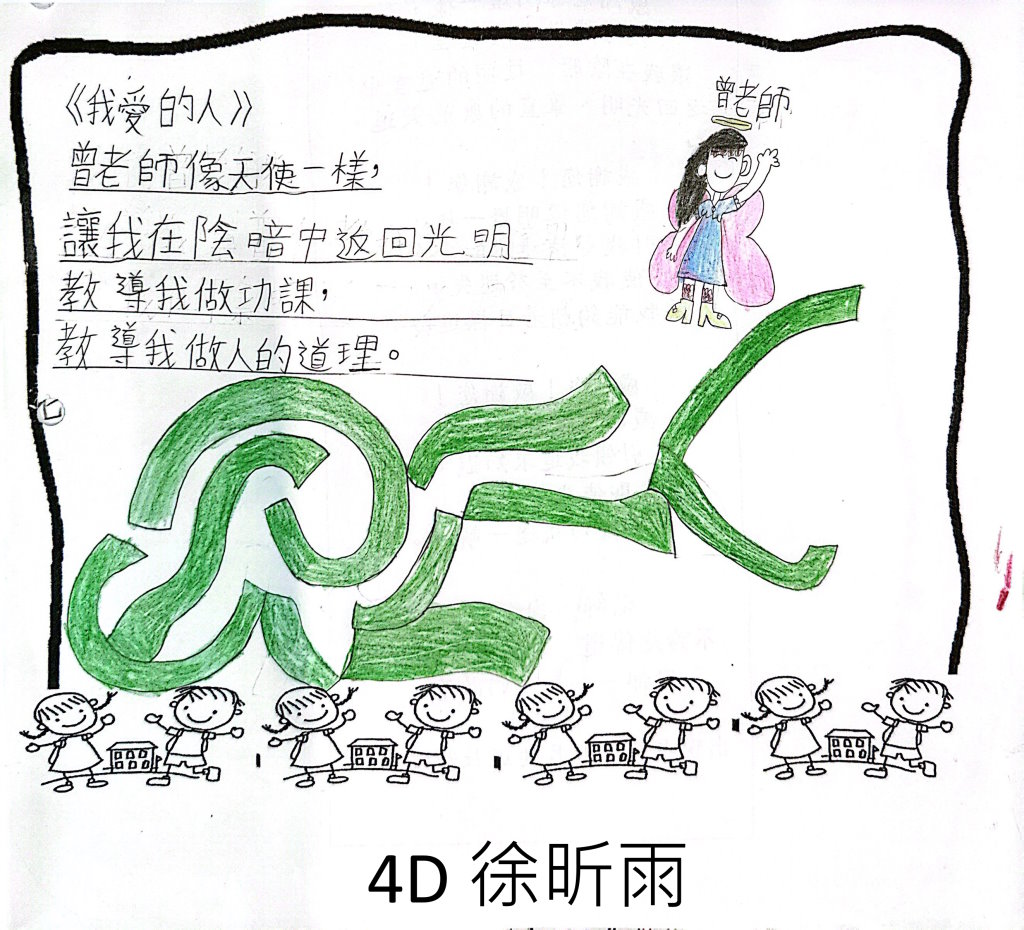 《我愛的人》
曾老師
曾老師像天使一樣，
讓我在陰暗中返回光明
教導我做功課，
教導我做人的道理。
4D 徐昕雨